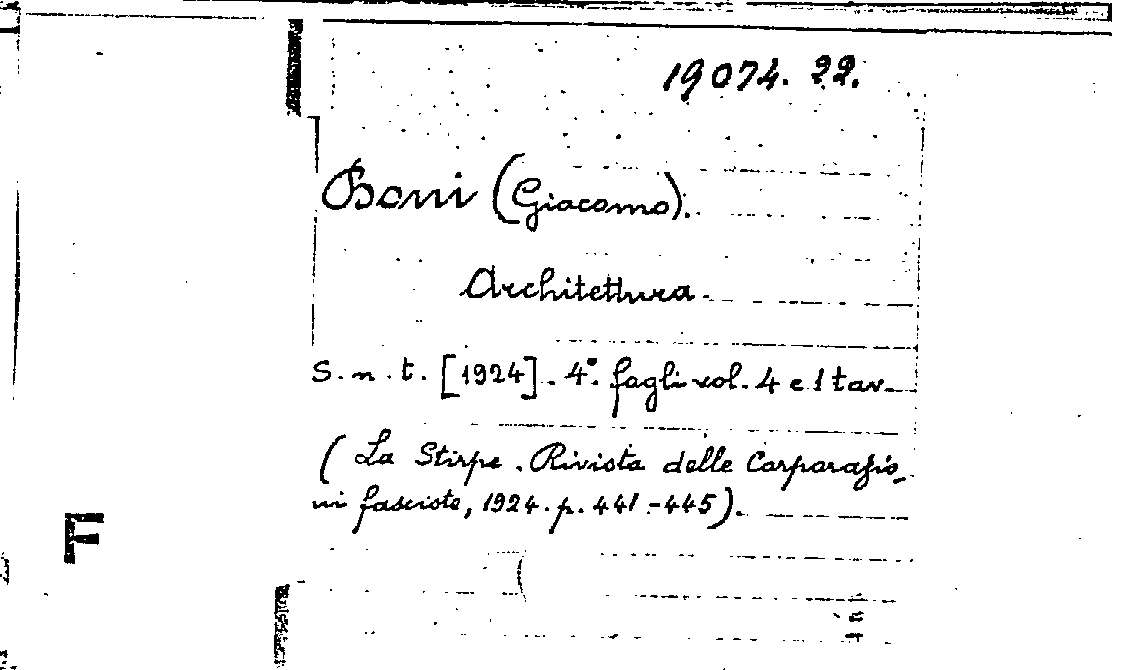 19074. 22.
Boni (Giacomo).
Architettura.
S. n. t. [1924]. 4°. fogli vol. 4 e 1 tav.
( La Stirpe. Rivista delle Corporazio-
ni fasciste, 1924. p. 441-445).
F